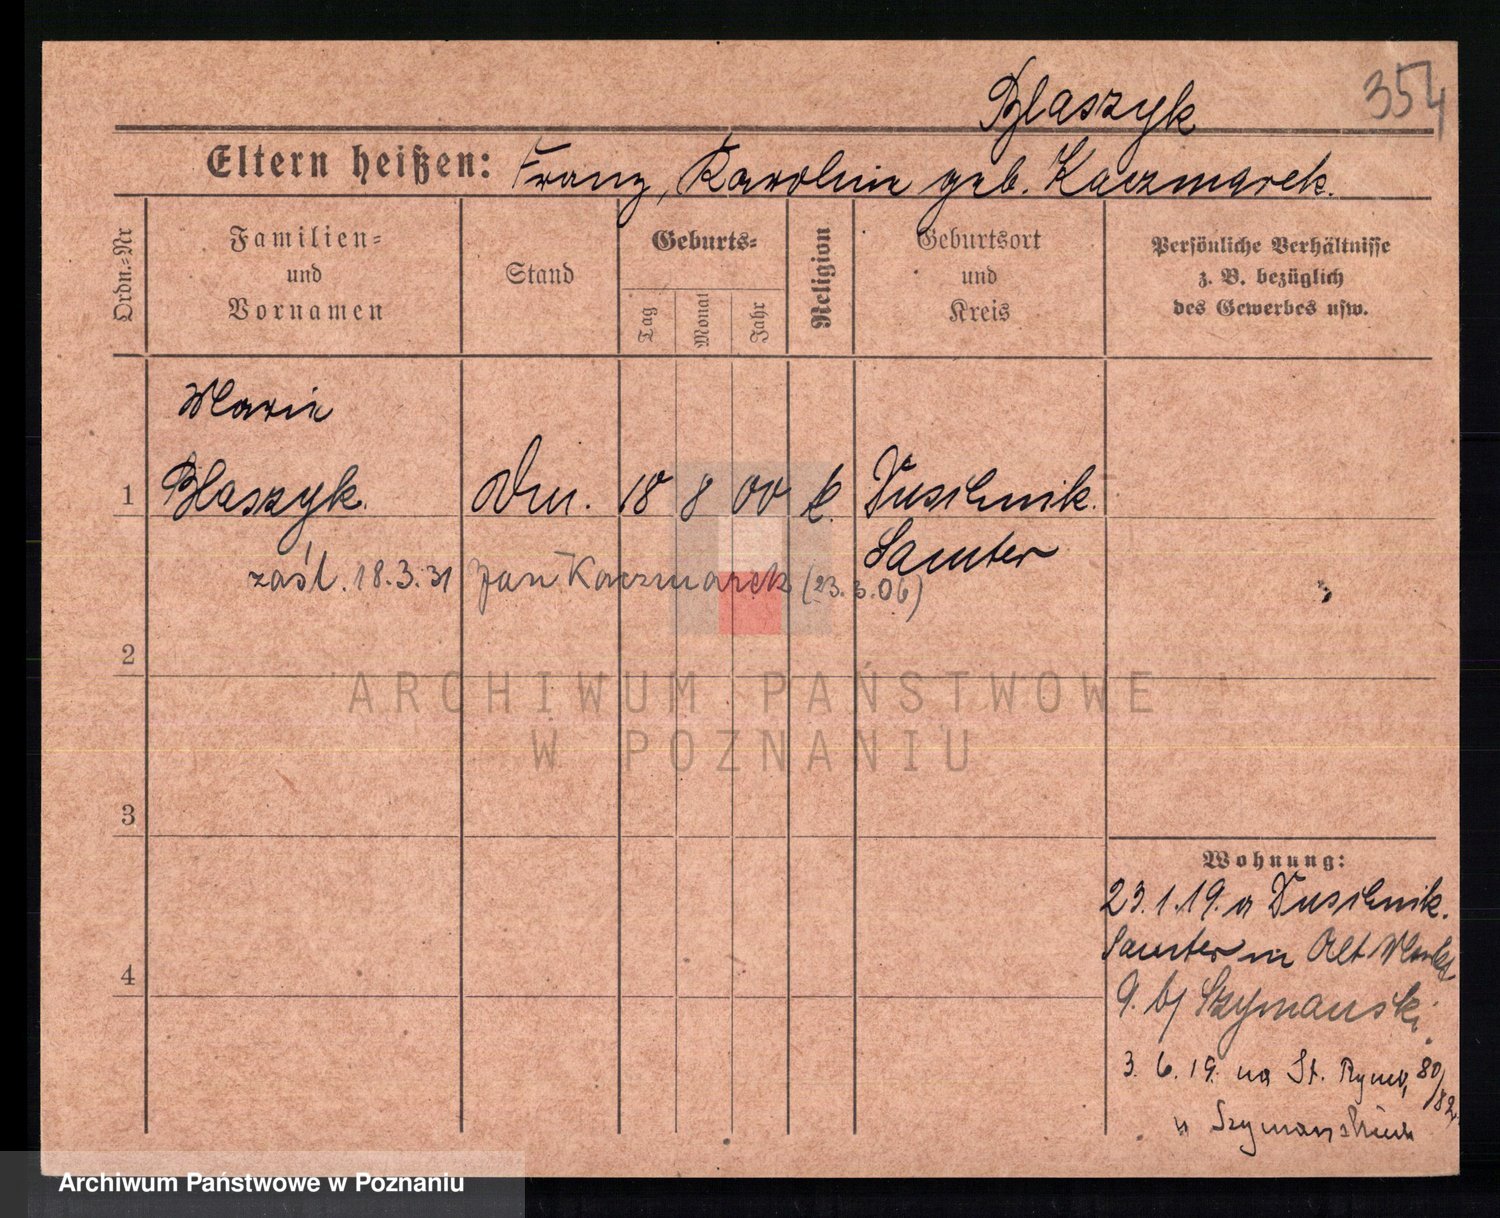 354
Blaszyk
Eltern heißen: Franz, Karoline geb. Kaczmarek.
Ordn.-Nr
Familien-
und
Vornamen
Stand
Geburts-
Tag
Monat
Jahr
Religion
Geburtsort
und
Kreis
Persönliche Verhältnisse
z. B. bezüglich
des Gewerbes usw.
Marie
1 Blaszyk. 18 8 00 k. Duschnik.
Samter
zaśl. 18.3.31 Jan Kaczmarek (23.3.06)
2
3
4
Wohnung:
23.1.19. a Duschnik.
Samter in Alt Markt
9. bj Szymanski.
3. 6. 19. na St. Rynek, 80/82.
u Szymańskich
ARCHIWUM PAŃSTWOWE
W POZNANIU
Archiwum Państwowe w Poznaniu